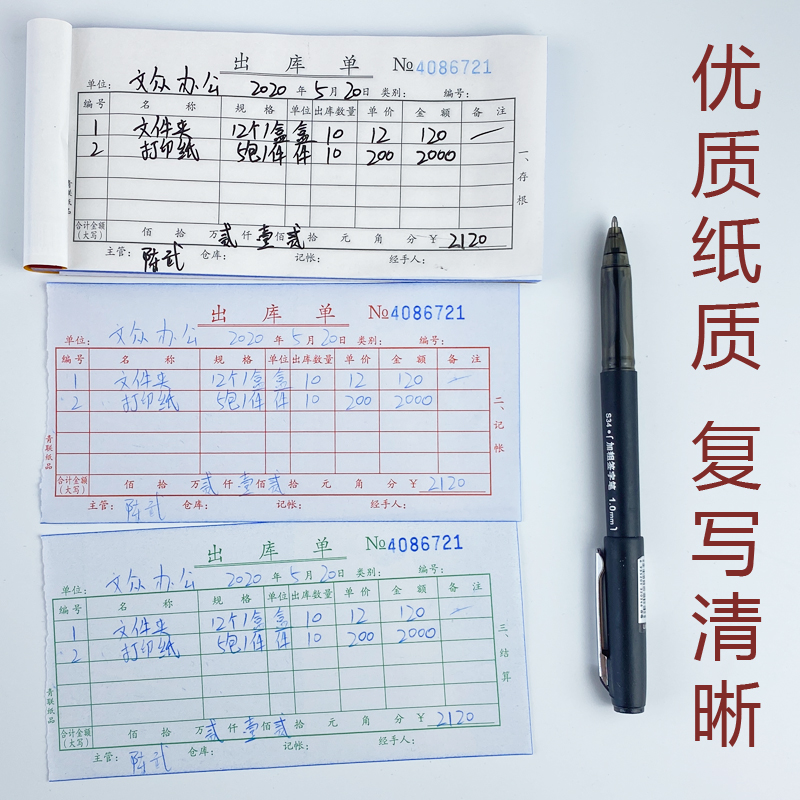 出 库 单 №4086721
单位: 文众办公 2020 年 5 月 20 日 类别: 编号:
编号 名 称 规 格 单位 出库数量 单 价 金 额 备 注
1 文件夹 12个1盒 盒 10 12 120 一
2 打印纸 5包1件 件 10 200 2000
一、存根
青联纸品
合计金额(大写) 佰 拾 万 贰 仟 壹 佰 贰 拾 元 角 分 ¥ 2120
主管: 陈武 仓库: 记帐: 经手人:
出 库 单 №4086721
单位: 文众办公 2020 年 5 月 20 日 类别: 编号:
编号 名 称 规 格 单位 出库数量 单 价 金 额 备 注
1 文件夹 12个1盒 盒 10 12 120 一
2 打印纸 5包1件 件 10 200 2000
二、记帐
青联纸品
合计金额(大写) 佰 拾 万 贰 仟 壹 佰 贰 拾 元 角 分 ¥ 2120
主管: 陈武 仓库: 记帐: 经手人:
出 库 单 №4086721
单位: 文众办公 2020 年 5 月 20 日 类别: 编号:
编号 名 称 规 格 单位 出库数量 单 价 金 额 备 注
1 文件夹 12个1盒 盒 10 12 120 一
2 打印纸 5包1件 件 10 200 2000
三、结算
青联纸品
合计金额(大写) 佰 拾 万 贰 仟 壹 佰 贰 拾 元 角 分 ¥ 2120
主管: 陈武 仓库: 记帐: 经手人:
S34 「加粗签字笔 1.0mm」
优质纸质 复写清晰